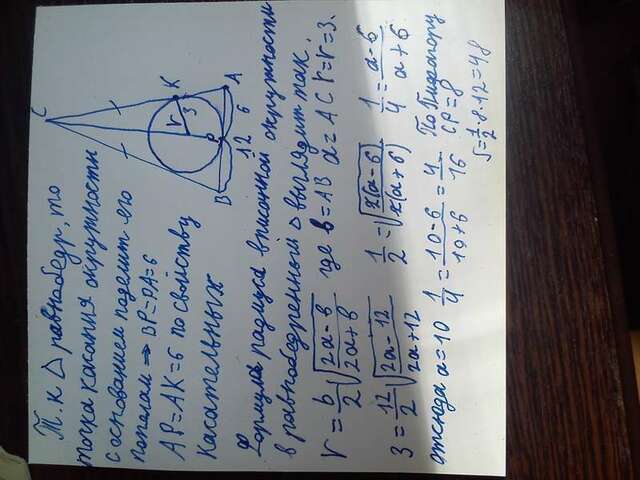 Т. к △ равнобедр, то
точка касания окружности
с основанием поделит его
пополам ⇒ BP=PA=6
AP=AK=6 по свойству
касательных
C
K
r
3
P
B
12
6
A
Формула радиуса вписанной окружности
в равнобедренный △ выглядит так.
r = b/2 √((2a-b)/(2a+b)) где b=AB a=AC r=r=3.
3 = 12/2 √((2a-12)/(2a+12)) 1/2 = √(2(a-6)/2(a+6)) 1/4 = (a-6)/(a+6)
отсюда a=10 1/4 = (10-6)/(10+6) = 4/16 По Пифагору
CP=8
S=1/2·8·12=48